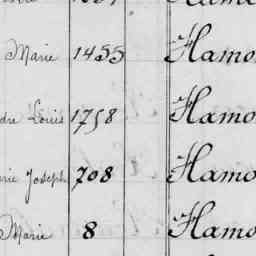 Marie 1455 Hamo
Louis 1758 Hamo
Joseph 708 Hamo
Marie 8 Hamo